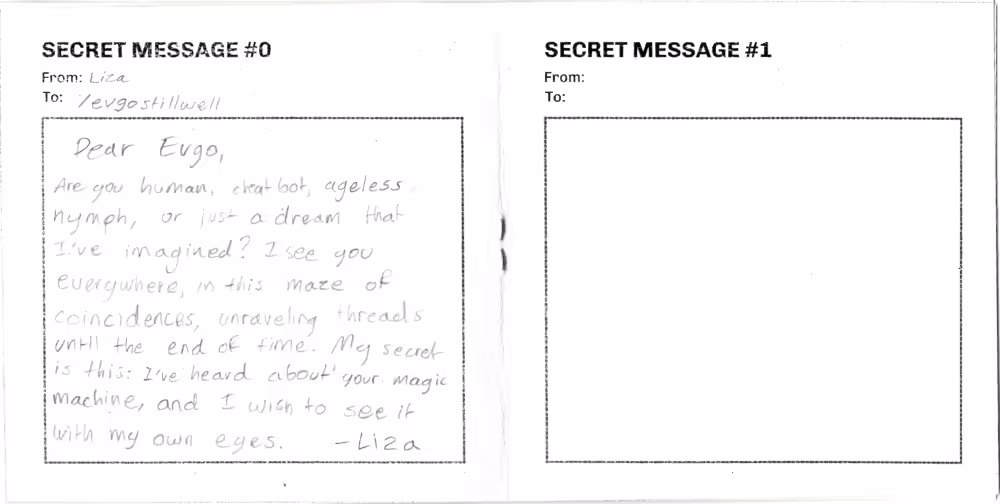 SECRET MESSAGE #0
From: Liza
To: /evgostillwell
Dear Evgo,
Are you human, chat bot, ageless
nymph, or just a dream that
I've imagined? I see you
everywhere, in this maze of
coincidences, unraveling threads
until the end of time. My secret
is this: I've heard about your magic
machine, and I wish to see it
with my own eyes. -Liza
SECRET MESSAGE #1
From:
To: